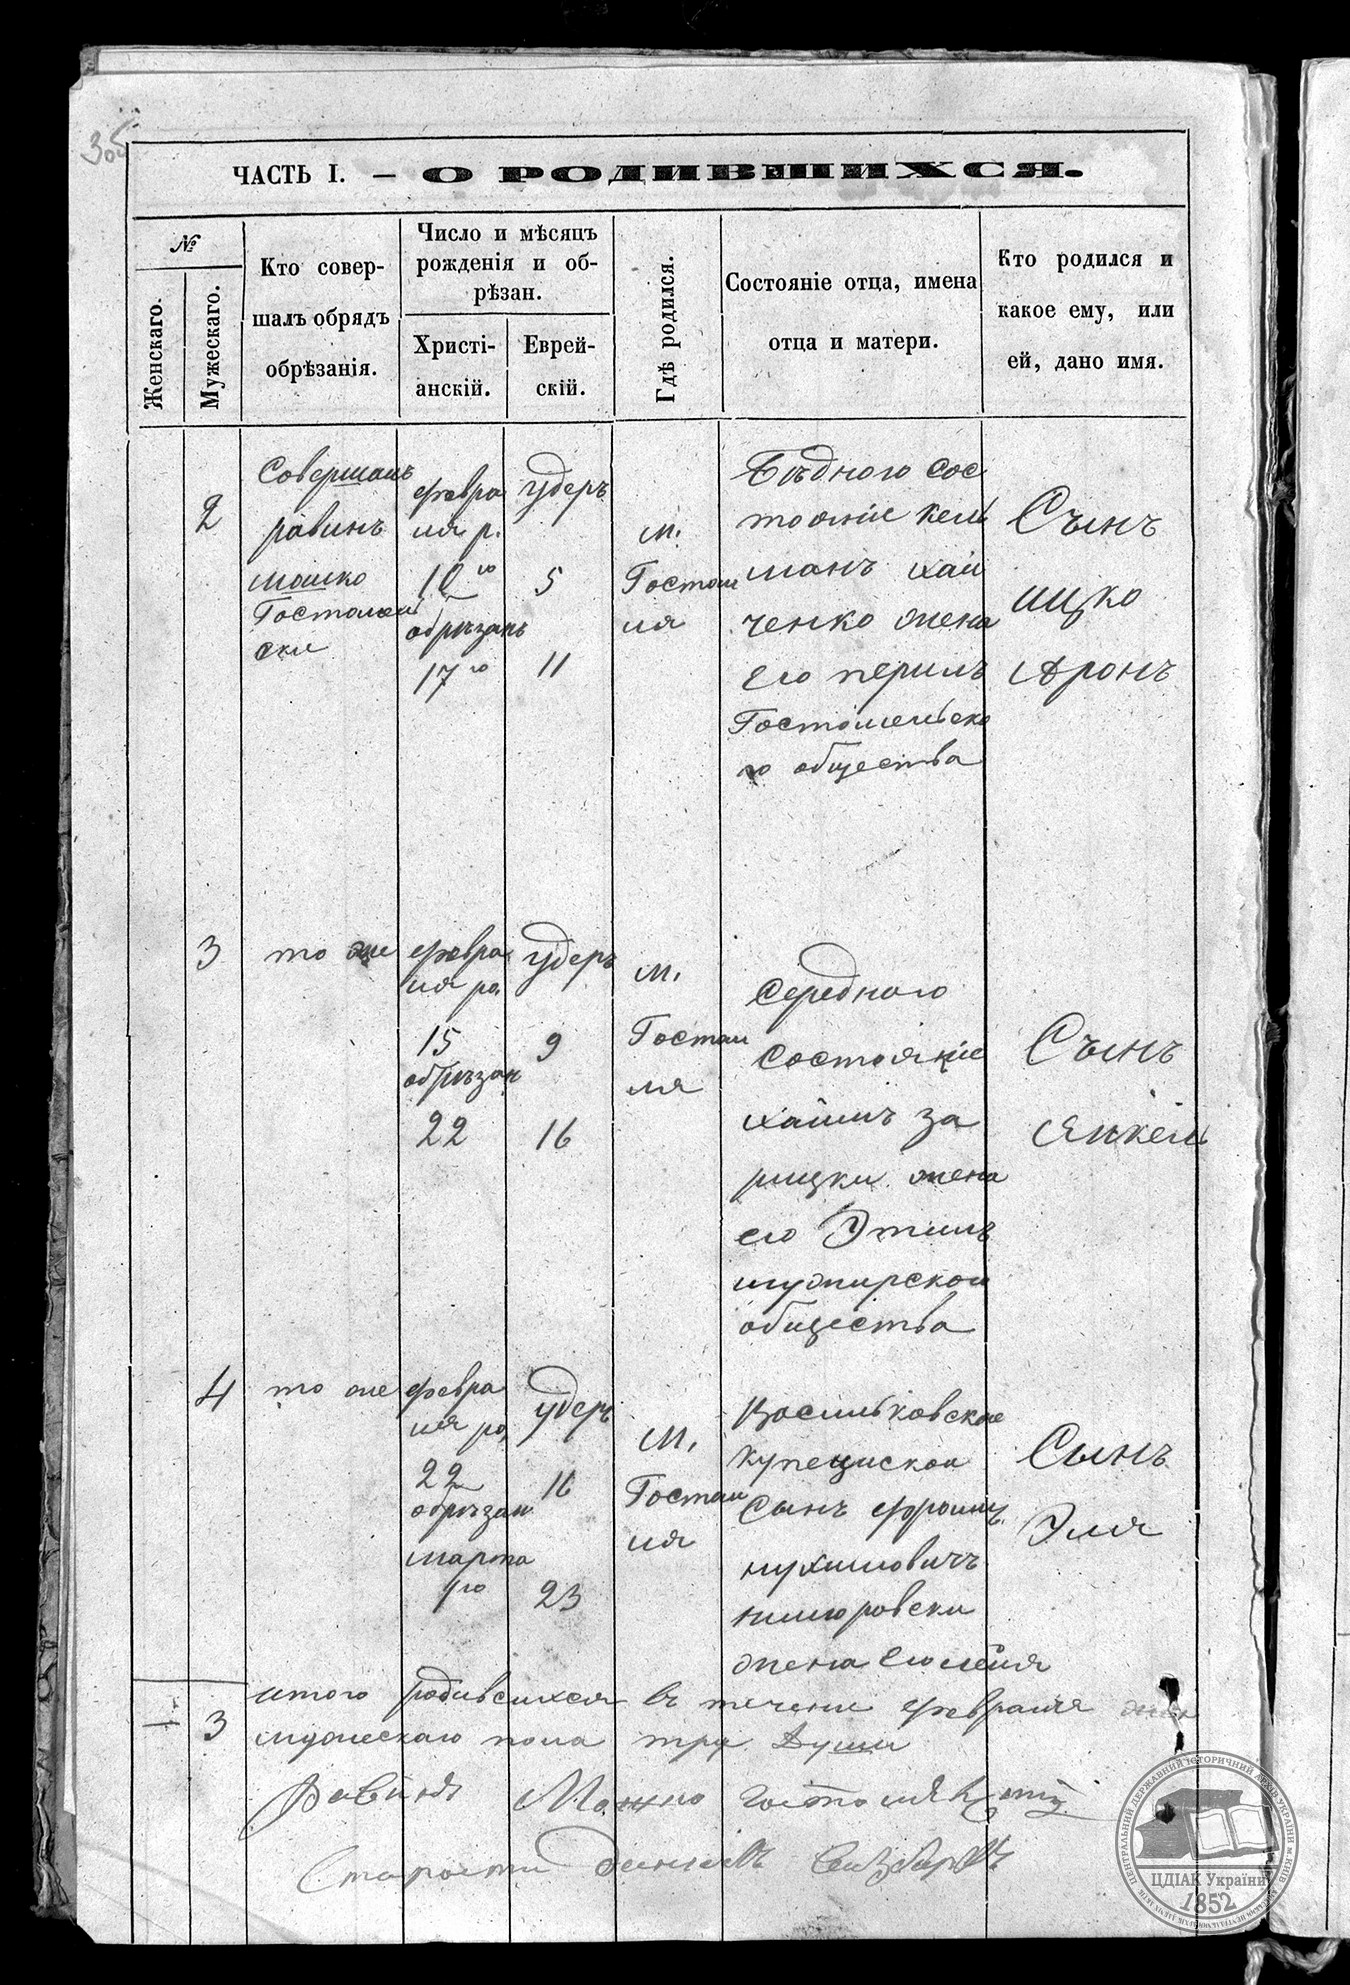 ЧАСТЬ I. — О РОДИВШИХСЯ.
№
Женскаго.
Мужескаго.
Кто совер-
шалъ обрядъ
обрѣзанія.
Число и мѣсяцъ
рожденія и об-
рѣзан.
Христі-
анскій.
Еврей-
скій.
Гдѣ родился.
Состояніе отца, имена
отца и матери.
Кто родился и
какое ему, или
ей, дано имя.
2
Совершалъ
равинъ
Мошко
Гостомел
ски
февра
ля р.
10го
обрѣзанъ
17го
удеръ
5
11
м.
Гостом
ля
Бѣдного сос
тояніе Кель
манъ Хай
ченко жена
его Перилъ
Гостомельско
го общества
Сынъ
Ицко
Аронъ
3
то же
февра
ля ро.
15
обрѣзан
22
удеръ
9
16
м.
Гостом
ля
Середного
состояніе
Хаимъ За
рицки жена
его Этилъ
общества
Сынъ
Янкель
4
то же
февра
ля ро,
22
обрѣзан
марта
1го
удеръ
16
23
м,
Гостом
ля
Васильковско
сынъ Фроимъ
жена его Лейя
Сынъ
Эля
3
итого родившихся въ течени февраля
мужескаго пола три души
Равинъ Мошко
Староста
ЦЕНТРАЛЬНИЙ ДЕРЖАВНИЙ ІСТОРИЧНИЙ АРХІВ УКРАЇНИ М. КИЇВ
ЦДІАК України
1852